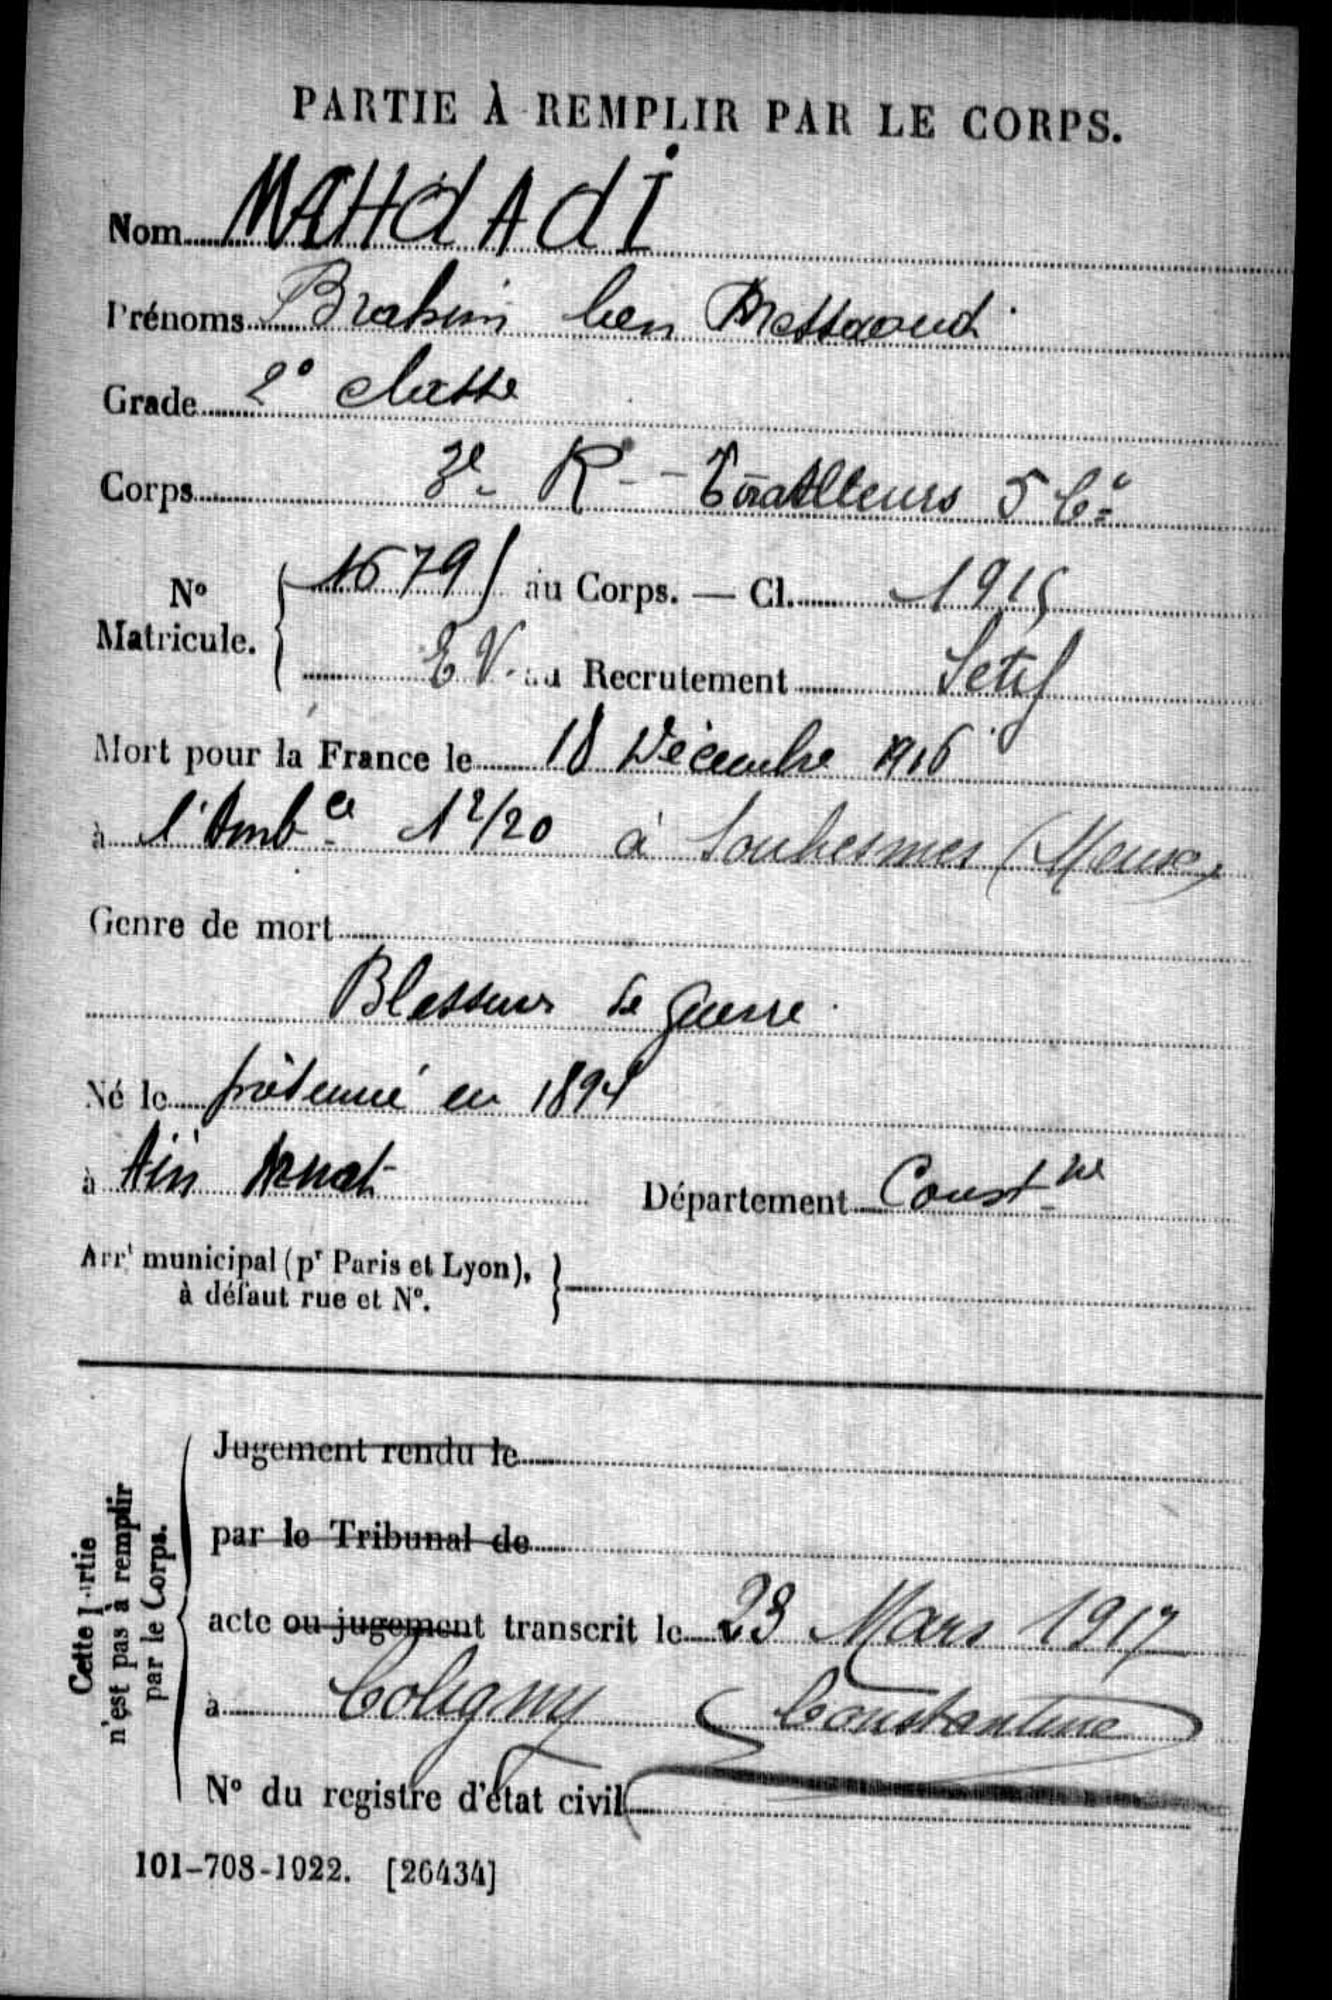 PARTIE À REMPLIR PAR LE CORPS.
Nom MAHdAdI
Prénoms Brahim ben Messaoud
Grade 2e classe
Corps 3e R. Tirailleurs 5 Cie
No Matricule. { 1679 au Corps. — Cl. 1915
E V. au Recrutement Setif
Mort pour la France le 18 Décembre 1916
à l'Ambce 12/20 à Souhesmes (Meuse)
Genre de mort
Blessures de guerre.
Né le présumé en 1894
à Ain Arnat Département Constne
Arrt municipal (pr Paris et Lyon), }
à défaut rue et No.
Cette Partie n'est pas à remplir par le Corps.
Jugement rendu le
par le Tribunal de
acte ou jugement transcrit le 23 Mars 1917
à Coligny (Constantine)
No du registre d'état civil
101-708-1922. [26434]